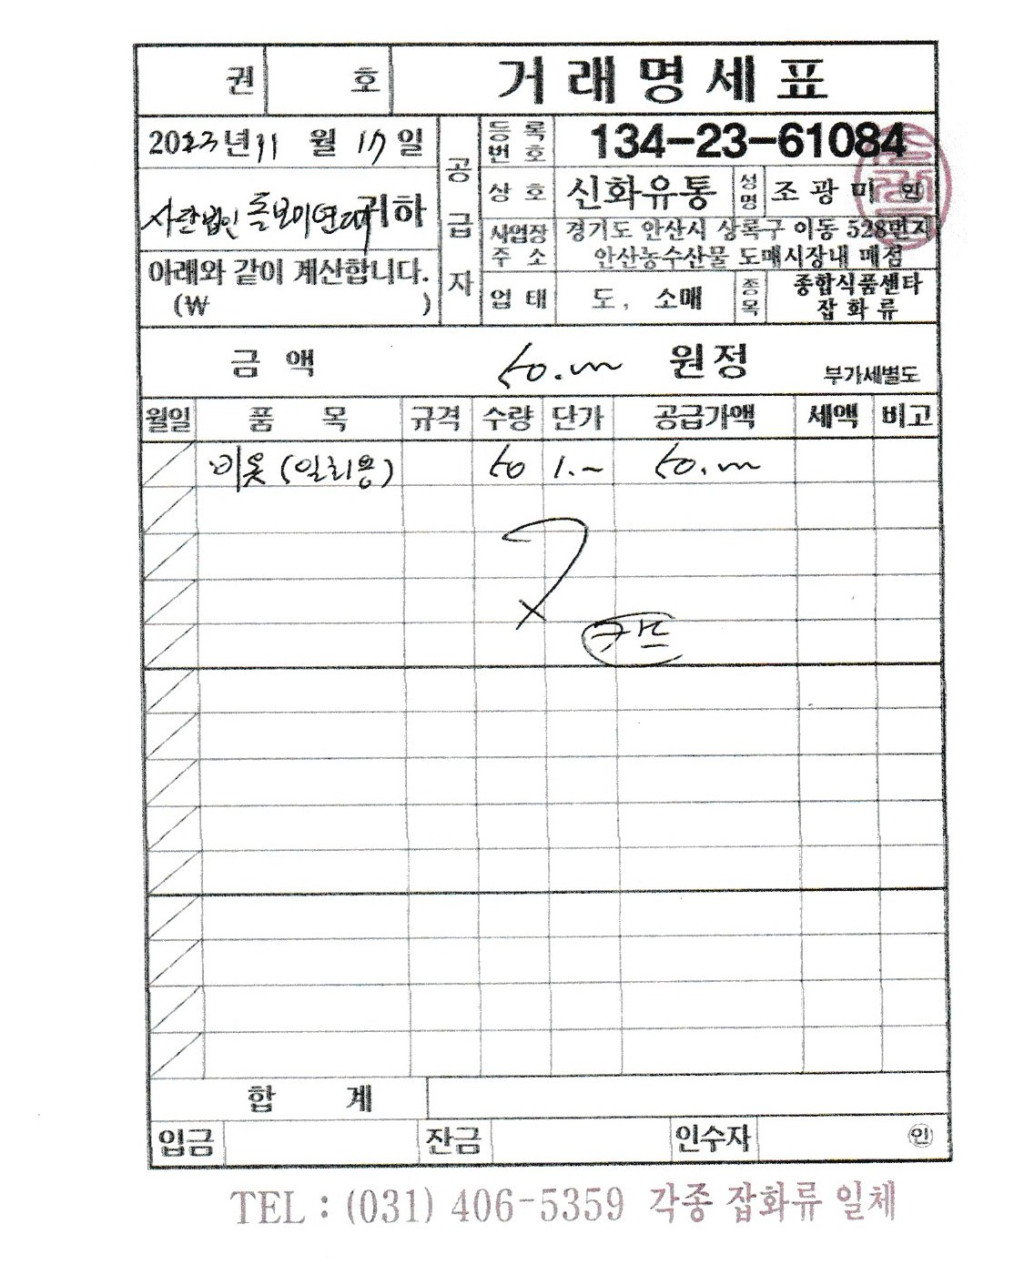 권 호 거래명세표
2023년 11월 17일
사단법인 돌보미연대 귀하
아래와 같이 계산합니다.
(₩ )
공급자
등록번호 134-23-61084
상호 신화유통 성명 조광미 인
사업장주소 경기도 안산시 상록구 이동 528번지
안산농수산물 도매시장내 매점
업태 도, 소매 종목 종합식품쎈타
잡화류
금액 50.m 원정 부가세별도
월일 품목 규격 수량 단가 공급가액 세액 비고
비옷(일회용) 50 1.~ 50.m
합계
입금 잔금 인수자 ㊞
TEL : (031) 406-5359 각종 잡화류 일체